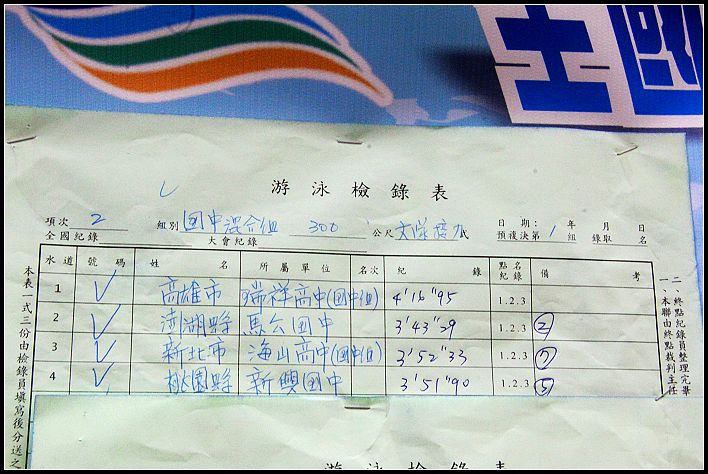 游泳檢錄表
項次 2 組別 國中混合組 300 公尺 式 日期: 年 月 日
全國紀錄 大會紀錄 預復決第 1 組 錄取 名
水道 號碼 姓名 所屬單位 名次 紀錄 點名紀錄 備考
1 ✓ 高雄市 瑞祥高中(國中組) 4'16"95 1.2.3
2 ✓ 澎湖縣 馬公國中 3'43"29 1.2.3 ②
3 ✓ 新北市 海山高中(國中組) 3'52"33 1.2.3 ⑦
4 ✓ 桃園縣 新興國中 3'51"90 1.2.3 ⑤
本表一式三份由檢錄員填寫後分送之
二、終點紀錄員整理完畢
一、本聯由終點裁判主任
游泳檢錄表